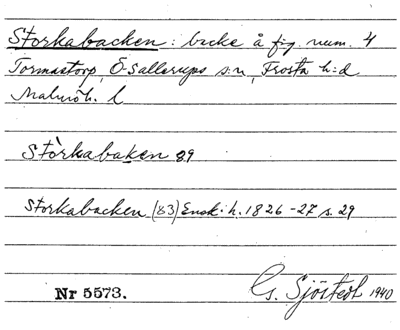 Storkabacken: backe å fig. num. 4
Tormastorp, Ö. Sallerups s:n, Frosta h:d
Malmöh. l
Stòrkabaken 89
Storkabacken (83) Ensk. h. 1826-27 s. 29
Nr 5573.
G. Sjöstedt 1940